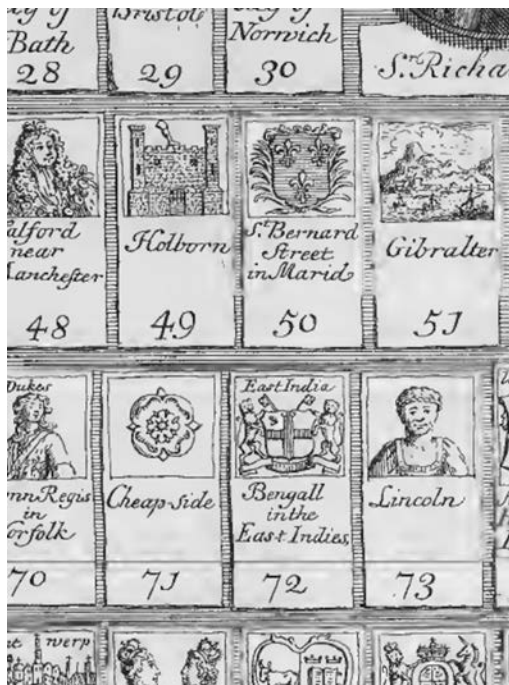 Bath
28
Bristoll
29
Norwich
30
Sr. Richa
alford
near
anchester
48
Holborn
49
St. Bernard
Street
in Marid
50
Gibralter
51
Dukes
nn Regis
in
orfolk
70
Cheap-side
71
East India
Bengall
in the
East Indies,
72
Lincoln
73
werp